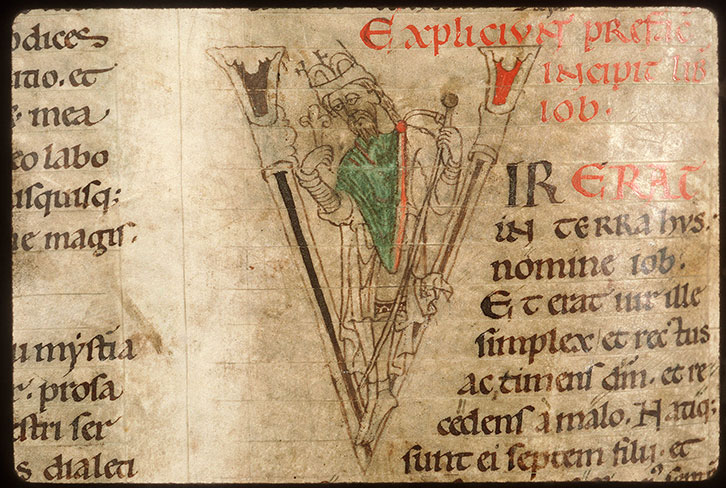 odices
itio. et
mea
eo labo
isquisq;
ne magis.
u mystia
r. prosa
stri ser
s dialeti
Expliciunt prefac
incipit lib
iob.
V
IR ERAT
in terra hus.
nomine iob.
Et erat uir ille
simplex et rectus
ac timens dm. et re
cedens a malo. Natiq;
sunt ei septem filii. et